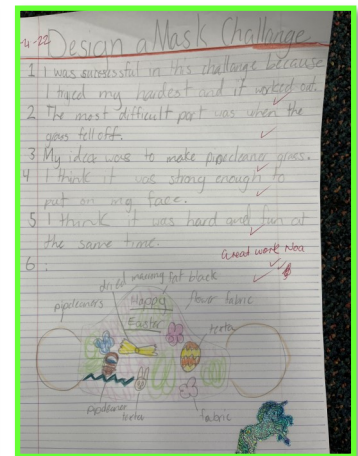 4-22 Design a Mask Challange
1 I was sucsessful in this challange because
I tryed my hardest and it worked out.
2 The most difficult part was when the
grass fell off.
3 My idear was to make pipecleaner grass.
4 I think it was strong enough to
put on my face.
5 I think it was hard and fun at
the same time.
Great work Noa
6
black
Happy
flower fabric
pipecleaners
Easter
Pipecleaner
fabric